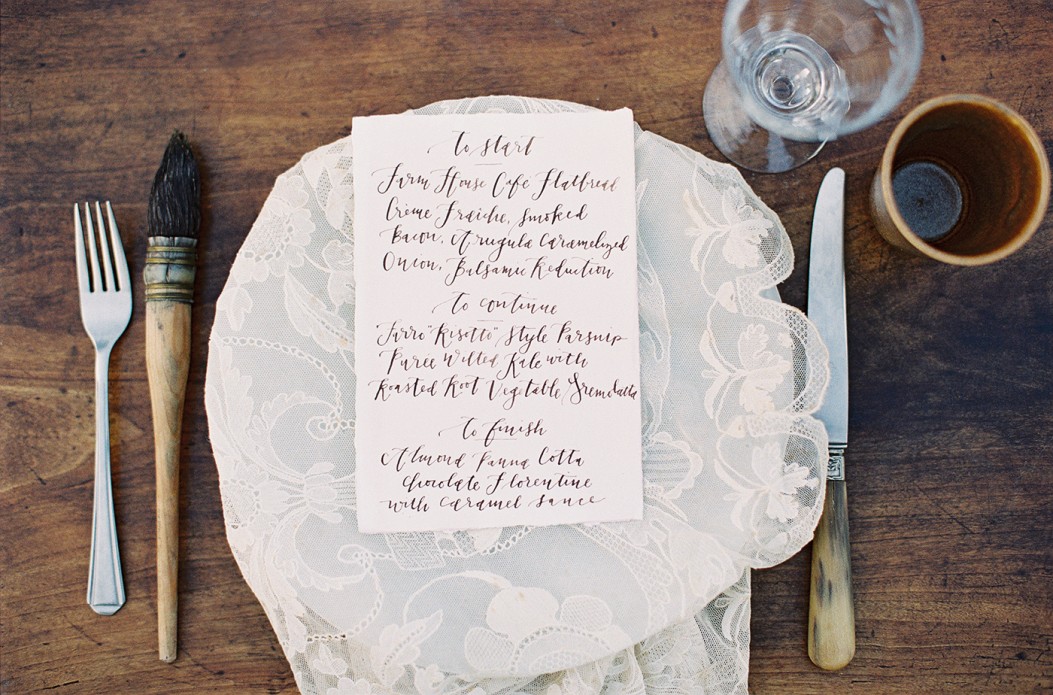 to start
Farm House Cafe Flatbread
Crème Fraîche, smoked
Bacon, Arugula Caramelized
Onion, Balsamic Reduction
to continue
"Farro "Risotto" Style Parsnip
Puree Wilted Kale with
Roasted Root Vegetable,
to finish
Almond Panna Cotta
chocolate Florentine
with caramel sauce